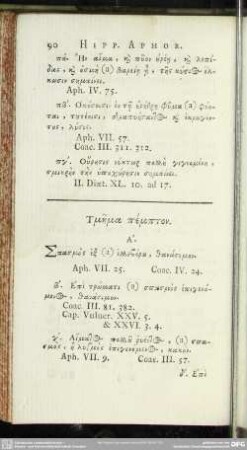 90 HIPP. APHOR.
πά. Ἢν αἷμα, ἢ πῦον οὐρέῃ, ἢ λεπί-
δας, ἢ ὀσμὴ (a) βαρείη ᾖ, τῆς κύστιος ἕλ-
κωσιν σημαίνει.
Aph. IV. 75.
πβʹ. Ὁκόσοισιν ἐν τῇ οὐρήθρῃ φῦμα (a) φύε-
ται, τουτέοισι, διαπυήσαντος ἢ ἐκραγέν-
τος, λύσις.
Aph. VII. 57.
Coac. III. 311. 312.
πγʹ. Οὔρησις νύκτωρ πολλὴ γινομένη,
σμικρὴν τὴν ὑποχώρησιν σημαίνει.
II. Diæt. XL. 10. ad 17.
Τμῆμα πέμπτον.
Αʹ.
Σπασμὸς ἐξ (a) ἑλλεβόρου, θανάσιμον.
Aph. VII. 25. Coac. IV. 24.
βʹ. Ἐπὶ τρώματι (a) σπασμὸς ἐπιγενό-
μενος, θανάσιμον.
Coac. III. 81. 382.
Cap. Vulner. XXV. 5.
& XXVI. 3. 4.
γʹ. Αἵματος πολλοῦ ῥυέντος, (a) σπα-
σμὸς, ἢ λυγμὸς ἐπιγενόμενος, κακόν.
Aph. VII. 9. Coac. III. 57.
δʹ. Ἐπὶ